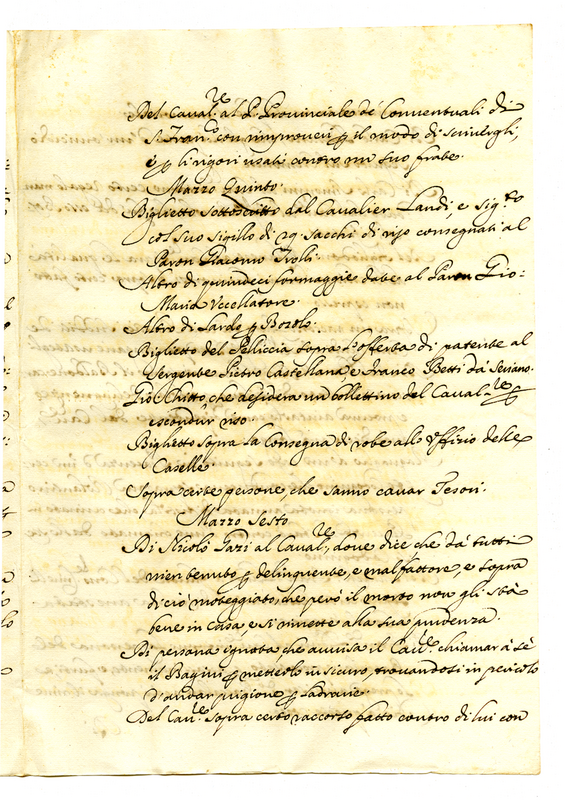 Del Caval.re al P. Provinciale de' Conventuali di
S. Fran.co con rimproveri p il modo di scivergli,
è p li rigori usati contro un suo frate.
Mazzo Quinto.
Biglietto sottoscritto dal Cavalier Landi, e sig.to
col suo sigillo di 29. sacchi di riso consegnati al
Paron Giacomo Troli.
Altro di quindeci formaggie date al Paron Gio:
Maria Vccellatore.
Altro di Lardo p Bozolo.
Biglietto del Pelliccia sopra l'offerta di patente al
Sergente Pietro Castellana e Franco Betti da Seriano.
Gio: Chitto, che desidera un bollettino del Caval.re p
escondur riso.
Biglietto sopra la Consegna di robe allo Vffizio delle
Caselle.
Sopra certe persone, che sanno cavar Tesori.
Mazzo Sesto
Di Nicolò Gazi al Caval.re, dove dice, che da tutti
vien tenuto p delinquente, e malfattore, e sopra
di ciò moteggiato, che però il morto non gli stà
bene in Casa, e si rimette alla sua prudenza.
Di persona ignota che avvisa il Cav.re chiamar à sè
il Bagini p metterlo in sicuro, trovandosi in pericolo
d'andar prigione p ladrarie.
Del Cav.re sopra certo raccorso fatto contro di lui con